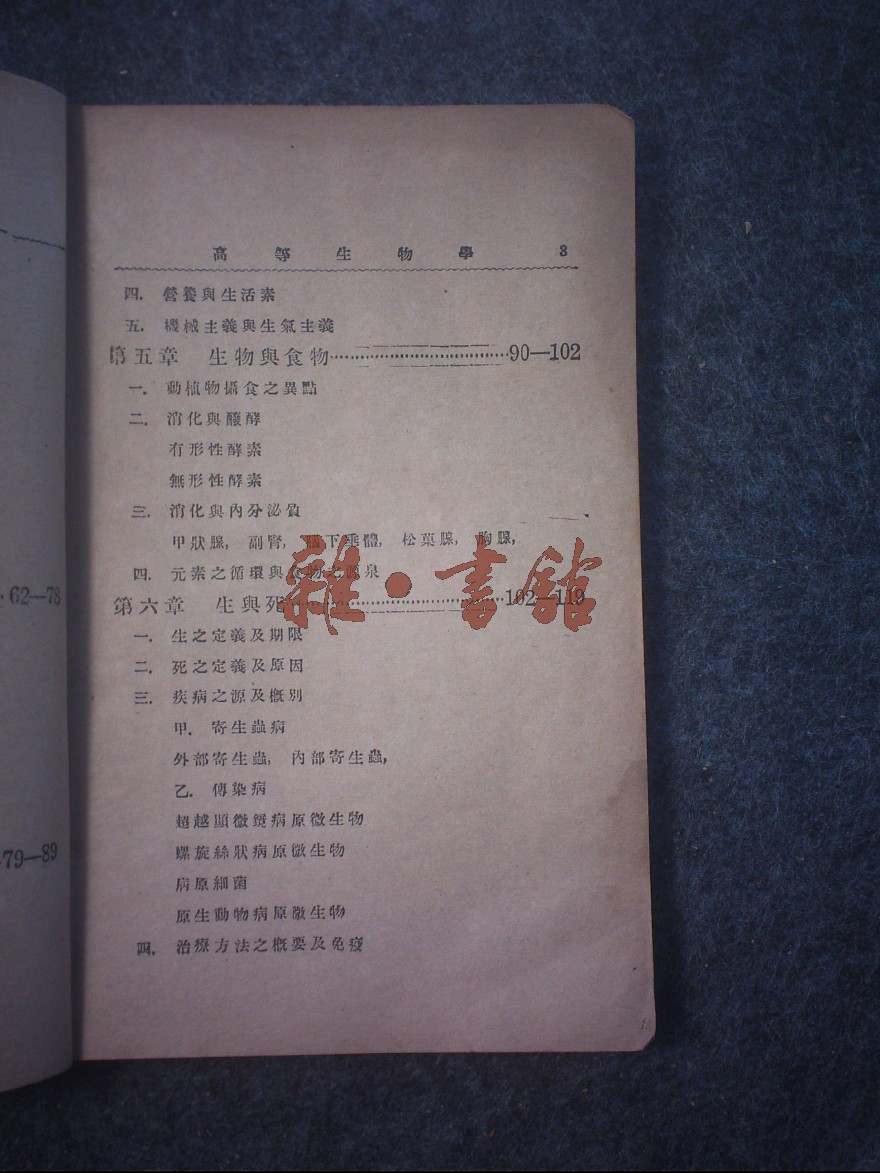 62—78
79—89
高等生物學 3
四. 營養與生活素
五. 機械主義與生氣主義
第五章 生物與食物……90—102
一. 動植物攝食之異點
二. 消化與醱酵
有形性酵素
無形性酵素
三. 消化與內分泌質
甲狀腺, 副腎, 腦下垂體, 松葉腺, 胸腺,
四. 元素之循環與食物之源泉
第六章 生與死……102—119
一. 生之定義及期限
二. 死之定義及原因
三. 疾病之源及概別
甲. 寄生蟲病
外部寄生蟲, 內部寄生蟲,
乙. 傳染病
超越顯微鏡病原微生物
螺旋絲狀病原微生物
病原細菌
原生動物病原微生物
四. 治療方法之概要及免疫
雜·書館